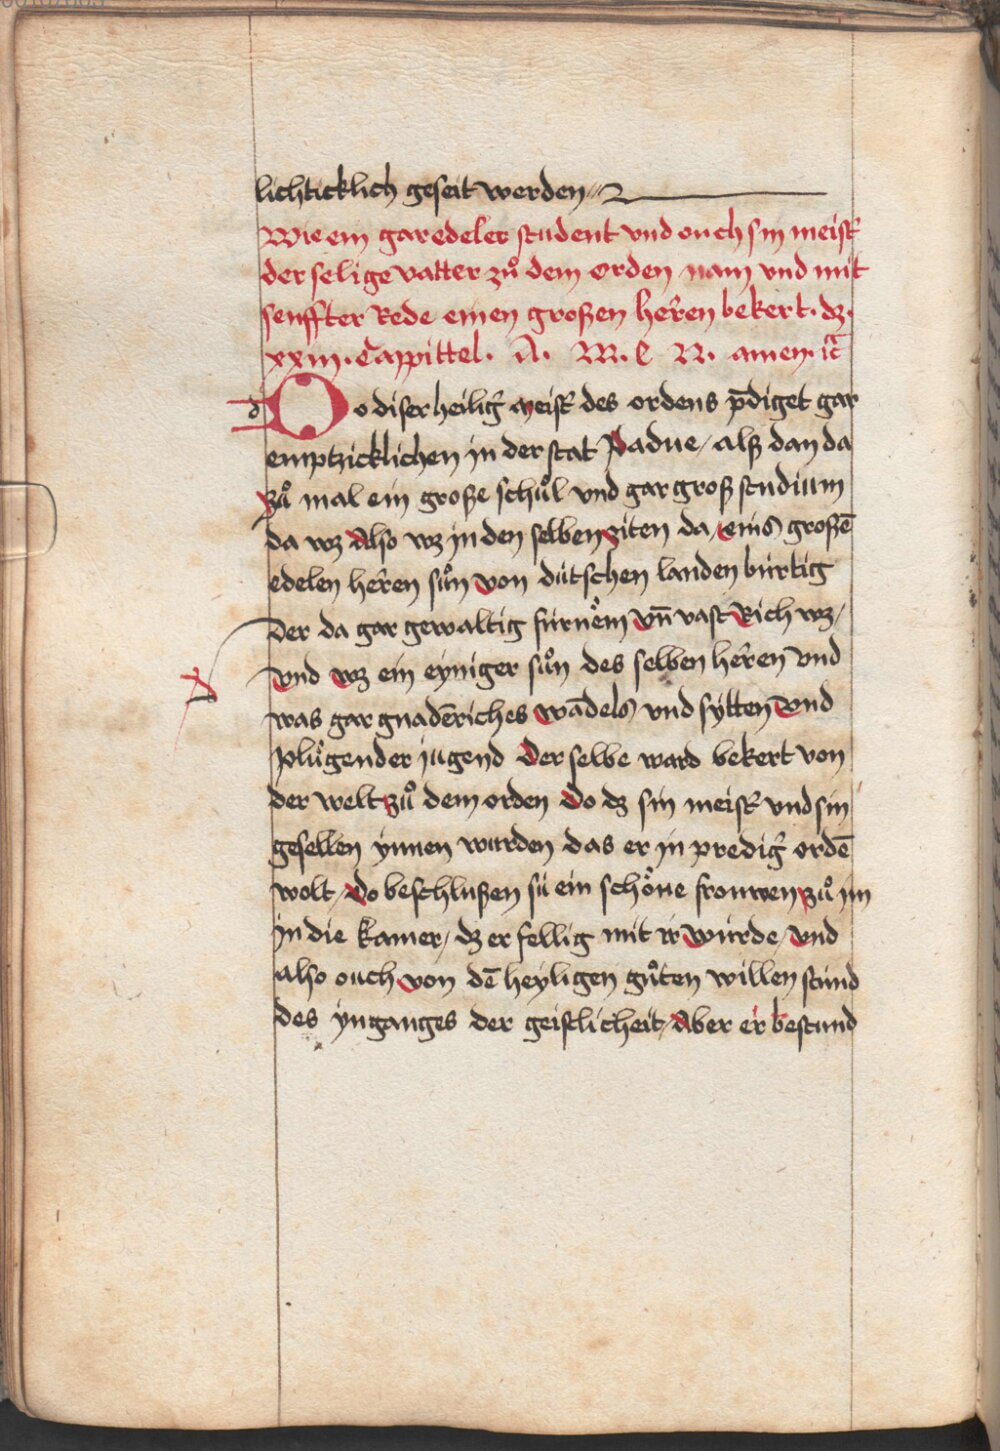 lichticklich geseit werden
Wie ein gar edeler student vnd ouch sin meist̃
der selige vatter zů dem orden nam vnd mit
senffter Rede einen großen heṝen bekert · dz ·
xxiij · Cappittel · A · M · E N · amen · ꝛc̃
Do diser heilig̃ meist̃ des ordens p̄diget gar
emptzicklichen in der stat Padue / alß dan da
zů mal ein große schůl vnd gar groß studium
da wz Also wz in den selben ziten da / eins großē
edelen heṝen sůn von dütschen landen bürtig
der da gar gewaltig fürnem̊ vn̄ vast Rich wz /
vnd wz ein eyniger sůn des selben heṝen vnd
was gar gnadēriches wādels vnd sytten vnd
plůgender jugend der selbe ward bekert von
der welt zů dem orden do dz sin meist̃ vnd sin
gesellen ynnen wurden das er in predig̃ ordē
wolt / do beschlußen sü ein schöne frouwen zů im
in die kamer / dz er fellig mit ir würde / vnd
also ouch von dē heyligen gůten willen stünd
des ynganges der geistlicheit / Aber er bestund